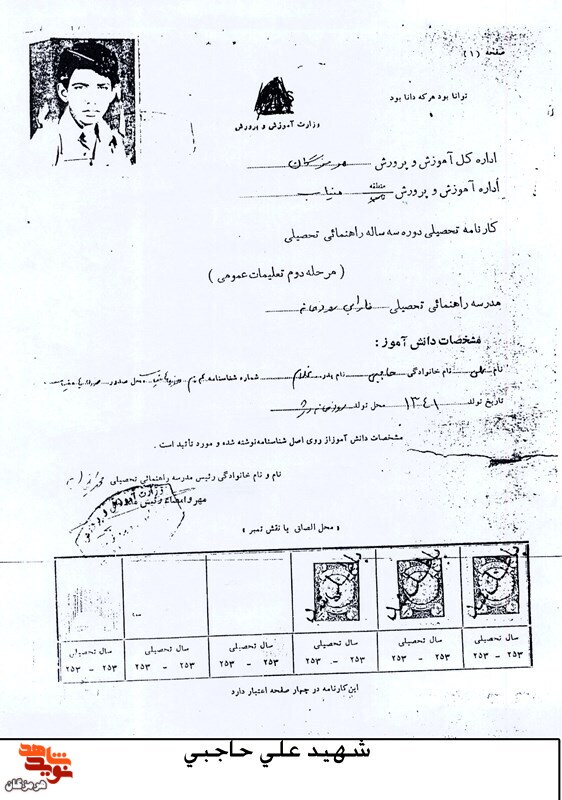 صفحه (۱)
توانا بود هر که دانا بود
وزارت آموزش و پرورش
اداره کل آموزش و پرورش هرمزگان
اداره آموزش و پرورش منطقه میناب
کارنامه تحصیلی دوره سه ساله راهنمائی تحصیلی
( مرحله دوم تعلیمات عمومی )
مدرسه راهنمائی تحصیلی فارابی رودخانه
مشخصات دانش آموز :
نام علی نام خانوادگی حاجبی نام پدر غلام شماره شناسنامه محل صدور
تاریخ تولد ۱۳۴۱ محل تولد رودخانه
مشخصات دانش آموز از روی اصل شناسنامه نوشته شده و مورد تأئید است .
نام و نام خانوادگی رئیس مدرسه راهنمائی تحصیلی
مهر و امضاء رئیس
وزارت آموزش و پرورش
« محل الصاق یا نقش تمبر »
سال تحصیلی سال تحصیلی سال تحصیلی سال تحصیلی سال تحصیلی سال تحصیلی
۲۵۳ - ۲۵۳ ۲۵۳ - ۲۵۳ ۲۵۳ - ۲۵۳ ۲۵۳ - ۲۵۳ ۲۵۳ - ۲۵۳ ۲۵۳ - ۲۵۳
این کارنامه در چهار صفحه اعتبار دارد
شهيد علي حاجبي
نوید شاهد
هرمزگان